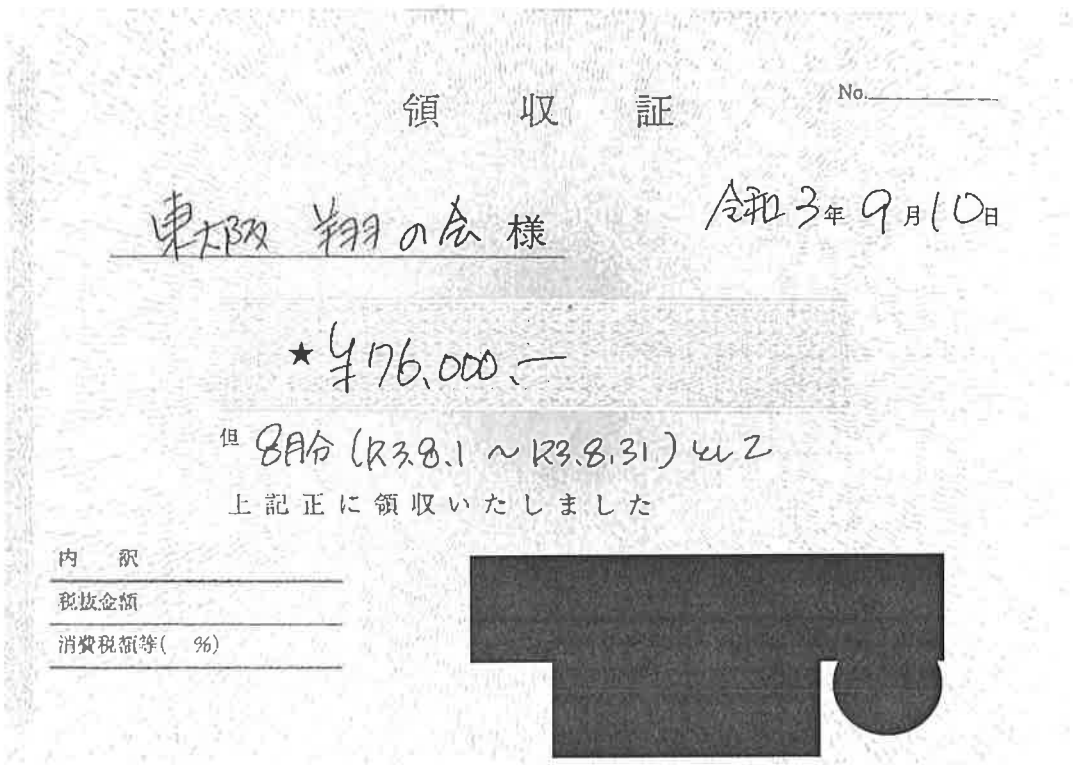 No.
領収証
東大阪 翔の会 様
令和3年9月10日
★¥76,000.-
但 8月分(R3.8.1~R3.8.31)として
上記正に領収いたしました
内訳
税抜金額
消費税額等( %)